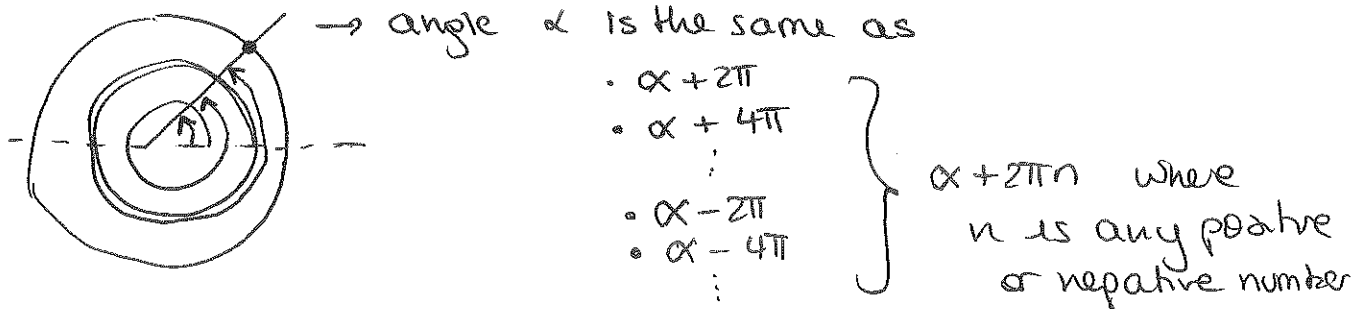 → angle α is the same as
• α + 2π
• α + 4π
⋮
• α - 2π
• α - 4π
⋮
α + 2πn where
n is any positive
or negative number